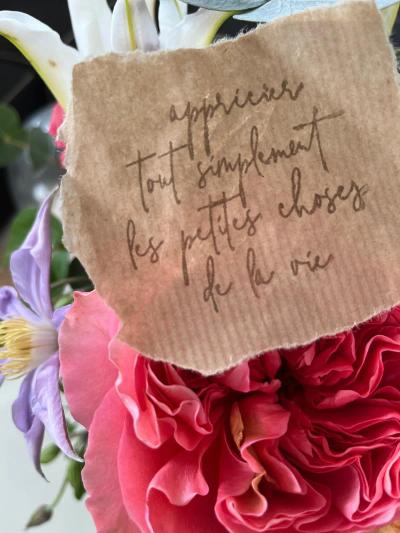 apprécier
tout simplement
les petites choses
de la vie